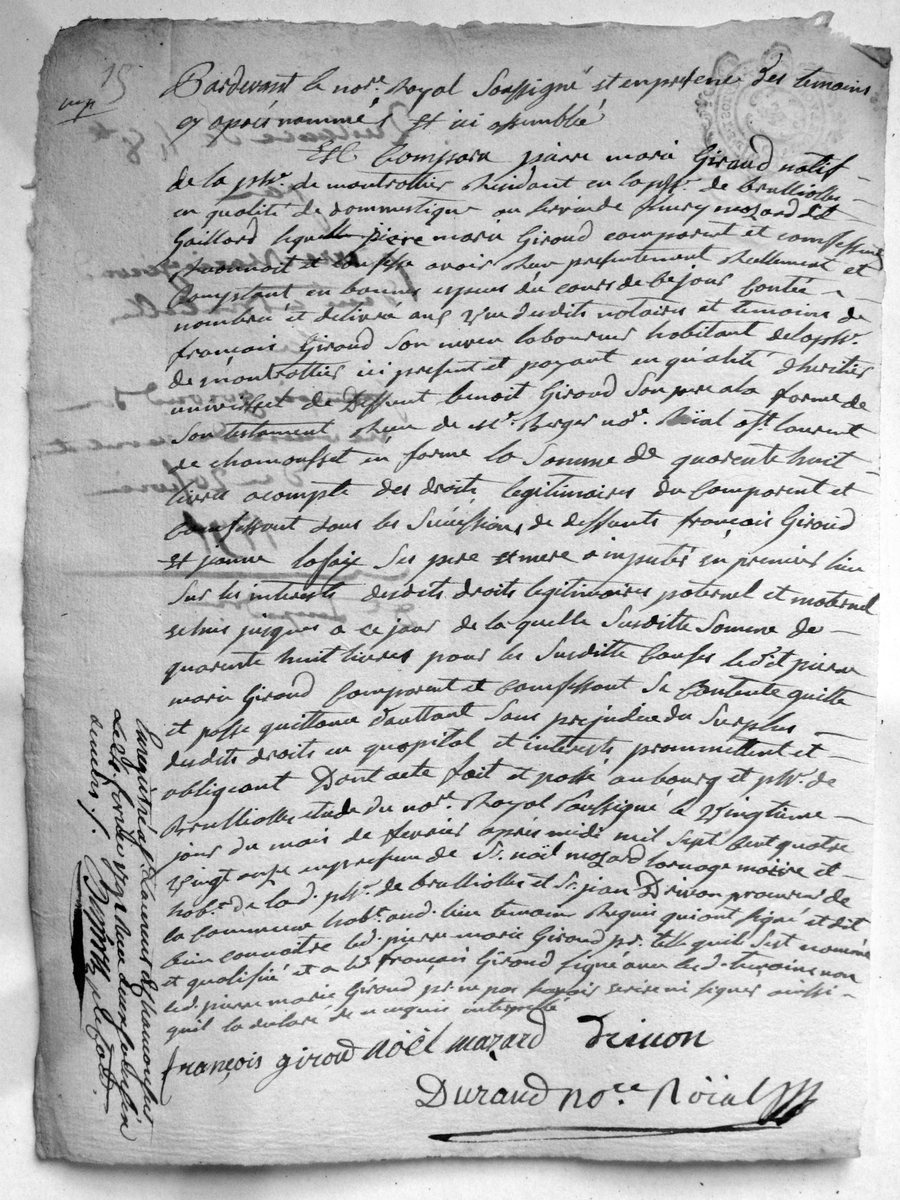 15
Pardevant le nore. Royal Soussigné et en presence des temoins
cy aprés nommés et ici assemblé
Est Comparu pierre marie Giroud natif
de la psse. de montrottier Residant en la psse. de brulliolles
en qualité de dommestique au service de fleury mozard dit
Gaillard lequelle pierre marie Giroud comparent et comfessent
Reconnoit et confesse avoir Reçu presentement Reellement et
Comptant en bonnes espeses du cours de ce jour Contée
nombré et delivré aux vue desdits notaires et temoins de
françois Giroud Son neveu laboureur habitant de la psse.
de montrottier ici present et payant en qualité d'heritier
universel de Deffunt benoit Giroud Son pere a la forme de
Son testament Reçu de Me. Berger nore. Roïal a St. laurent
de chamousset en forme la Somme de quarente huit
livres acompte des droits legitimaires du Comparent et
Comfessent dans les Successions de deffunts françois Giroud
et jeanne lafaix Ses pere et mere a imputer en premier lieu
Sur les interests desdits droits legitimaires paternel et maternel
echus jusques a ce jour de la quelle Susditte Somme de
quarente huit livres pour les Susditte Causes ledit pierre
marie Giroud Comparent et Comfessent Se Contente quitte
et passe quittance d'auttant Sans prejudice du Surplus
desdits droits en quapital et interests prommettent et
obligeant Dont acte fait et passé au bourg et psse. de
Brulliolles etude du nore. Royal Soussigné le vingtieme
jour du mois de fevrier aprés midi mil Sept Cent quatre
vingt onze en presence de Sr. noël mozard lornage maire et
habt. de lad. psse. de brulliolles et Sr. jean Drivon procureur de
la Commune habt. aud. lieu temoin Requis qui ont signé et dit
bien connaitre led. pierre marie Giroud pr. telle quil Sest nommé
et qualifié et a led. françois Giroud signé avec lesd. temoins non
led. pierre marie Giroud pr. ne pas Savoir ecrire ni signer ainssi
quil la declaré de ce enquis interpellé
françois giroud noël mazard Drivon
Durand nore Roïal
Enregistré a St. Laurent de chamousset
deniers